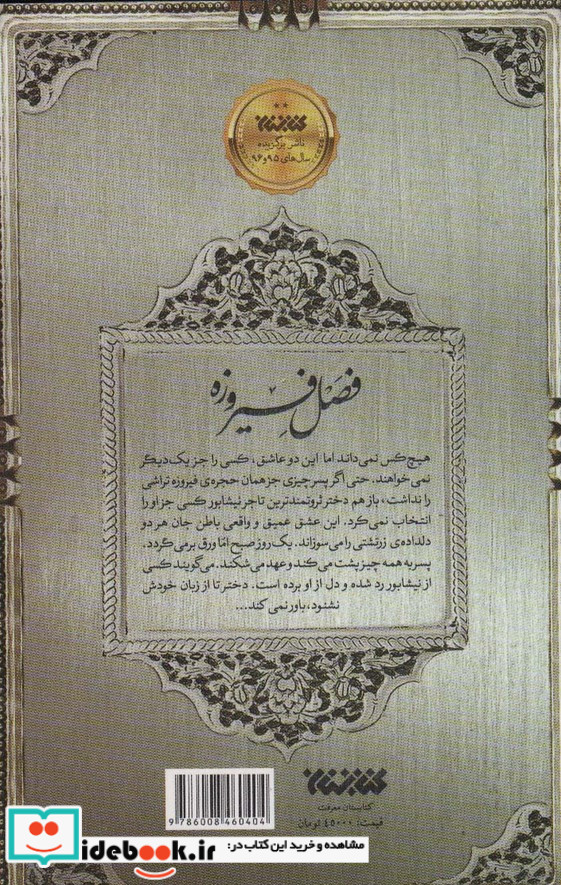 کتابستان
ناشر برگزیده
سال‌های ۹۵ و ۹۶
فصل فیروزه
هیچ کس نمی‌داند اما این دو عاشق، کسی را جز یک دیگر
نمی‌خواهند. حتی اگر پسر چیزی جز همان حجره‌ی فیروزه تراشی
را نداشت، باز هم دختر ثروتمندترین تاجر نیشابور کسی جز او را
انتخاب نمی‌کرد. این عشق عمیق و واقعی باطن جان هر دو
دلداده‌ی زرتشتی را می‌سوزاند. یک روز صبح امّا ورق برمی‌گردد.
پسر به همه چیز پشت می‌کند و عهد می‌شکند. می‌گویند کسی
از نیشابور رد شده و دل از او برده است. دختر تا از زبان خودش
نشنود، باور نمی‌کند...
کتابستان
کتابستان معرفت
قیمت: ۴۵۰۰۰ تومان
9 786008 460404
idebook.ir
مشاهده و خرید این کتاب در: